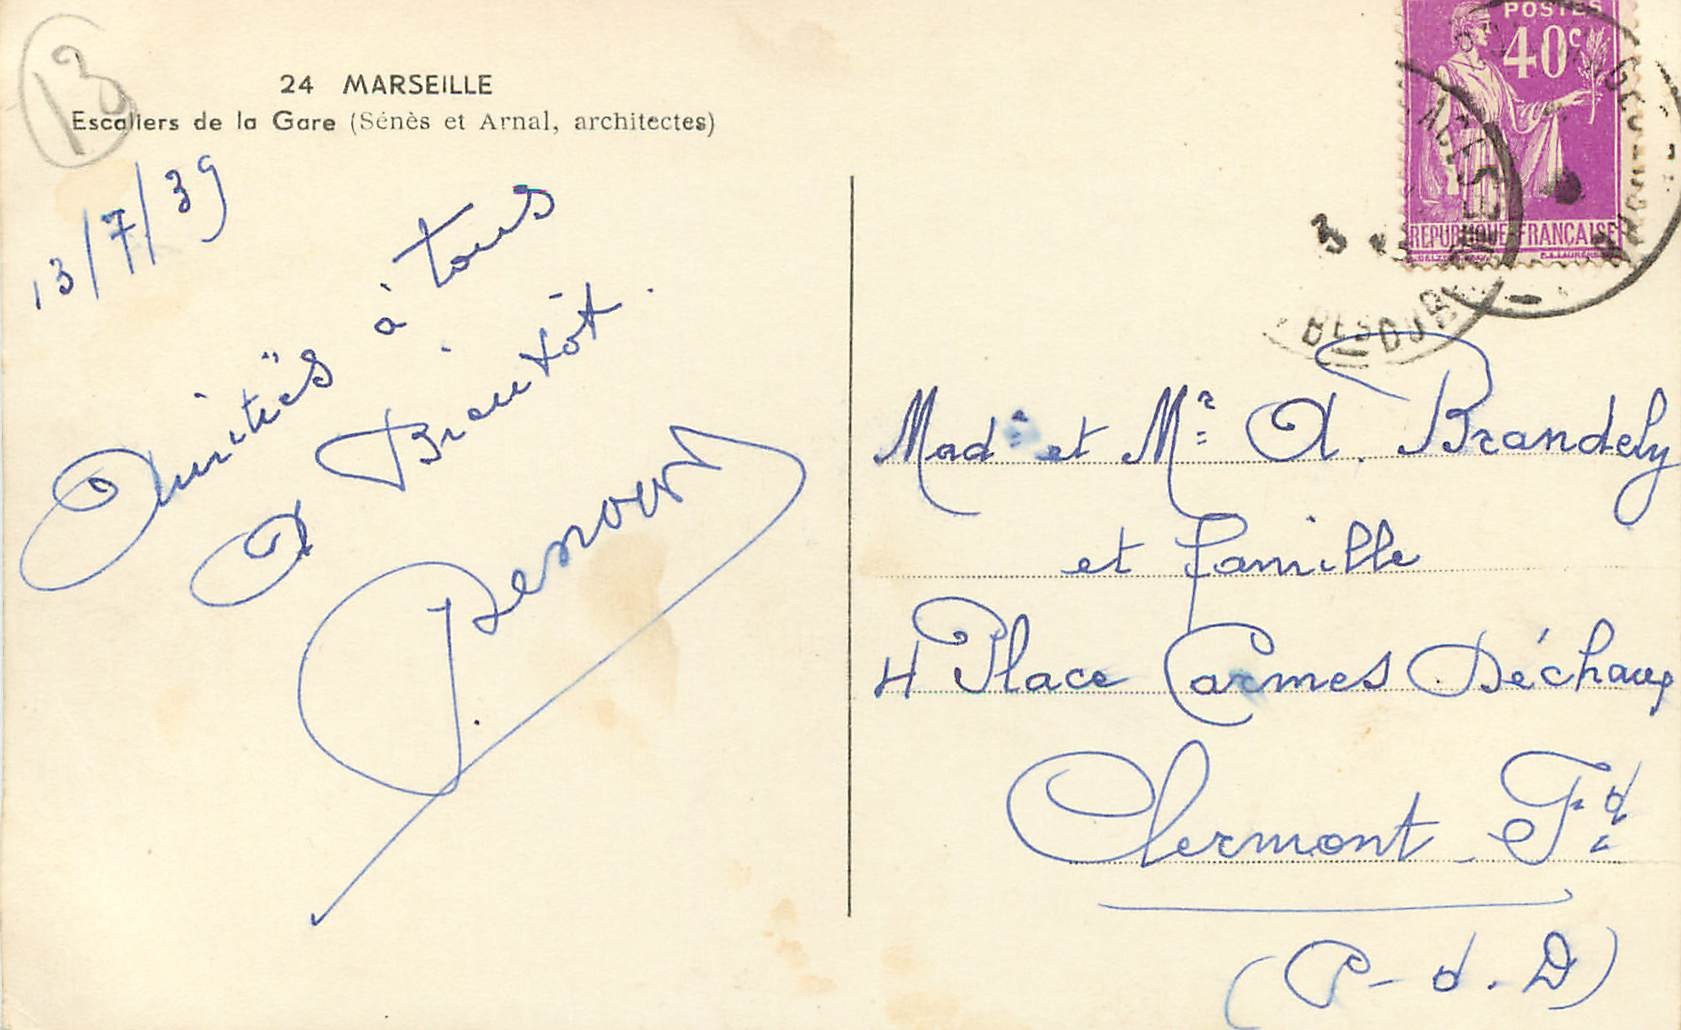 13
24 MARSEILLE
Escaliers de la Gare (Sénès et Arnal, architectes)
13/7/39
Amitiés à tous
A Bientôt.
POSTES
40c
REPUBLIQUE FRANÇAISE
3
Made et Mr A. Brandely
et famille
4 Place Carmes Déchaux
Clermont-Fd
(P-d.D)